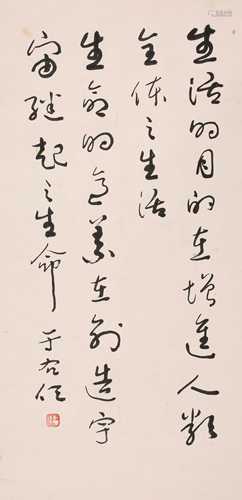 生活的目的在增進人類
全体之生活
生命的意義在創造宇
宙繼起之生命
于右任